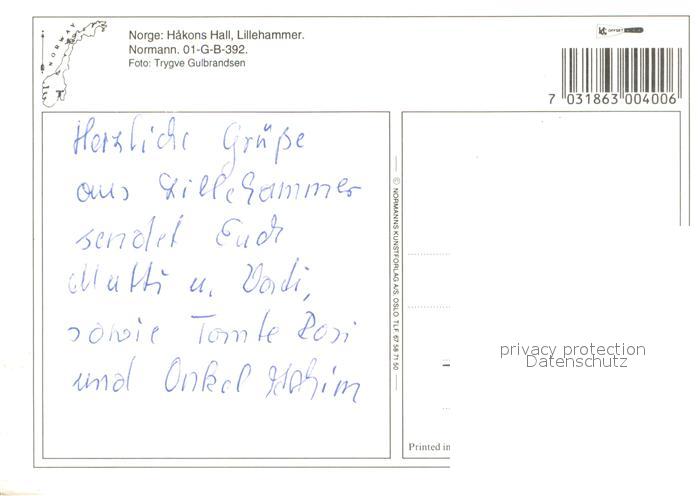 NORWAY
Norge: Håkons Hall, Lillehammer.
Normann. 01-G-B-392.
Foto: Trygve Gulbrandsen
OFFSET
7 031863 004006
Herzliche Grüße
aus Lillehammer
sendet Euch
Mutti u. Vati,
sowie Tante Rosi
und Onkel
© NORMANNS KUNSTFORLAG A/S, OSLO TLF 67 58 71 50
privacy protection
Datenschutz
Printed in